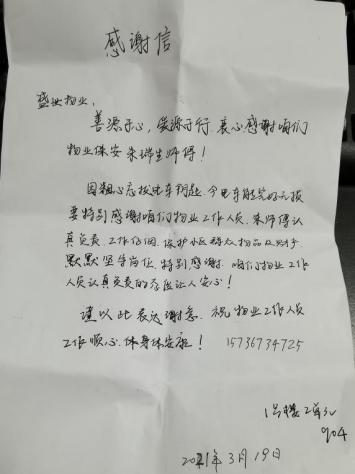 感谢信
盛世物业，
善源于心，爱源于行 衷心感谢咱们
物业保安朱瑞生师傅！
因粗心忘拔电车钥匙，今电车能完好无损
要特别感谢咱们物业工作人员，朱师傅认
真负责，工作仔细，保护小区群众物品及财产
默默坚守岗位，特别感谢，咱们物业工作
人员认真负责的存在让人安心！
谨以此表达谢意、祝物业工作人员
工作顺心，体身体安康！ 15736734725
1号楼2单元
904
2021年3月19日